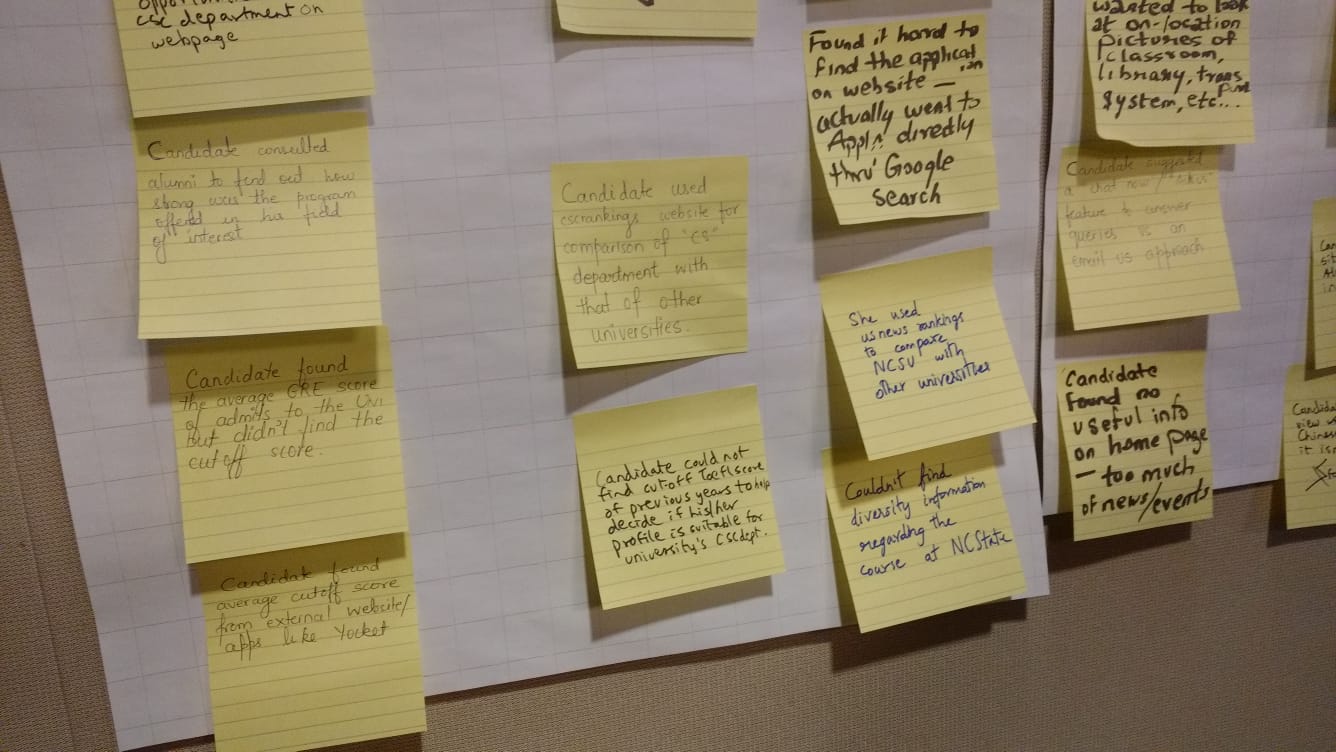 csc department on
webpage
Candidate consulted
alumni to find out how
strong was the program
offered in his field
of interest
Candidate found
the average GRE score
of admits to the Uni
but didn't find the
cutoff score.
Candidate found
average cutoff score
from external website/
apps like Yocket
Candidate used
cscrankings website for
comparison of "CS"
department with
that of other
universities.
Candidate could not
find cutoff Toefl score
of previous years to help
decide if his/her
profile is suitable for
university's CSC dept.
Found it hard to
find the applicat
ion
on website —
actually went to
Appln directly
thru' Google
search
She used
usnews rankings
to compare
NCSU with
other universities
Couldn't find
diversity information
regarding the
course at NC State
wanted to look
at on-location
pictures of
classroom,
library, trans
port
system, etc...
Candidate suggested
a chat now /
feature to answer
queries vs an
email us approach
Candidate
found no
useful info
on home page
— too much
of news/events
Candida
view
Chines
it is